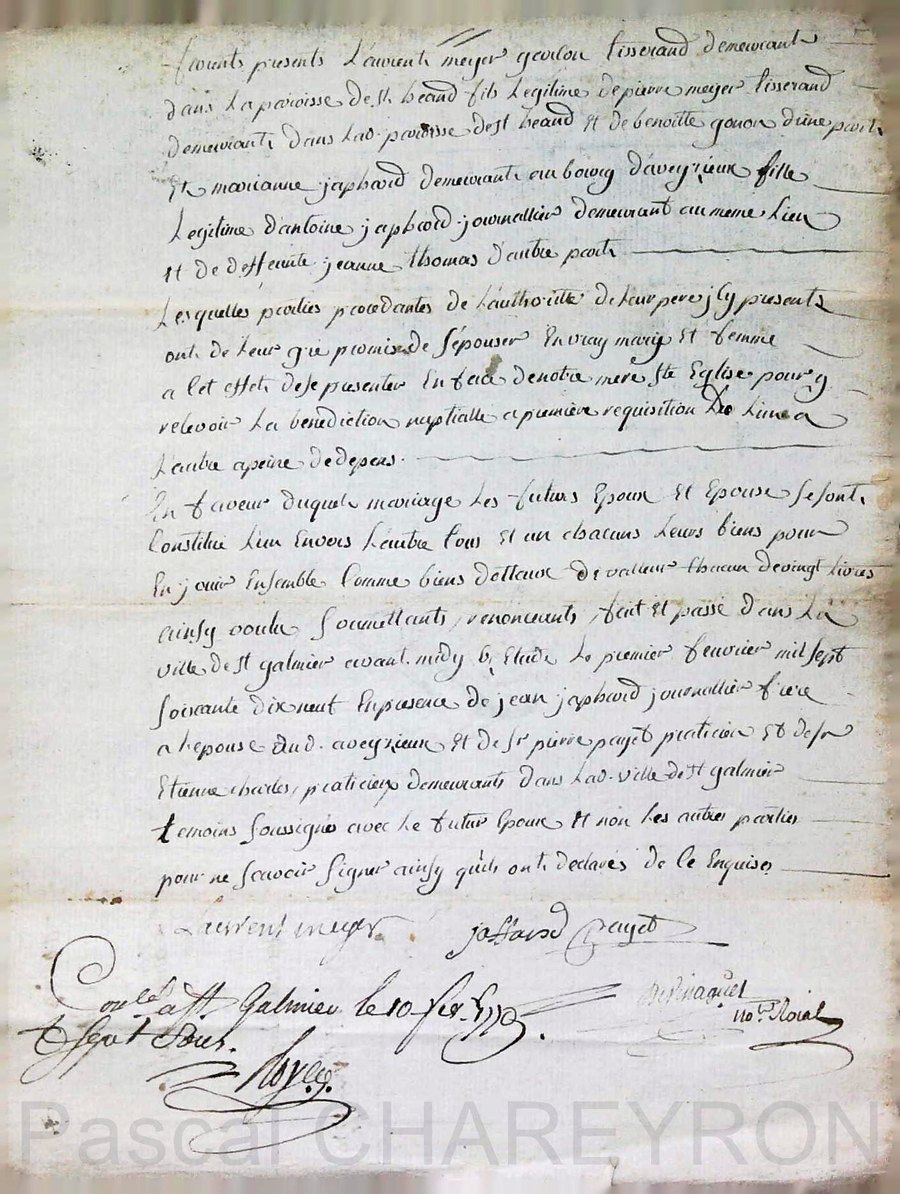 furents presents Laurent meyer garson tisserand demeurant
dans La paroisse de st heand fils Legitime de pierre meyer tisserand
demeurant dans Lad. paroisse de st heand Et de benoitte gonon d'une part
Et marianne japhard demeurante au bourg d'aveyzieux fille
Legitime d'antoine japhard journallier demeurant au meme Lieu
Et de deffeunte jeanne thomas d'autre part
Lesquelles parties procedantes de L'authoritté de Leur pere jcy presents
ont de Leur gré promis de s'épouser En vray mary Et femme
a Cet effet de se presenter En face de notre mere ste Eglise pour y
recevoir La benediction nuptialle a première requisition De L'une a
L'autre a peine de depens.
En faveur duquel mariage Les futurs Epoux Et Epouse se sont
Constitué L'un Envers L'autre tous Et un chacuns Leurs biens pour
En jouir Ensemble Comme biens dettaux de valleur chacun de vingt Livres
ainsy voulu soumettants, renoncants, fait Et passé dans La
ville de st galmier avant midy Etude Le premier feuvrier mil sept
soixante dix neuf En presence de jean japhard journallier frere
a Lepouse dud. aveyzieux Et de sr pierre payet praticien Et de sr
Etienne charles, praticiens demeurants dans Lad. ville de st galmier
temoins soussignés avec Le futur Epoux Et non Les autres parties
pour ne scavoir signer ainsy qu'ils ont declarés de Ce Enquises
Laurent meyer jaffard payet
Conlé a st Galmier le 10 fer. 1779.
nore Roial
R sept sous.
Royer
Pascal CHAREYRON